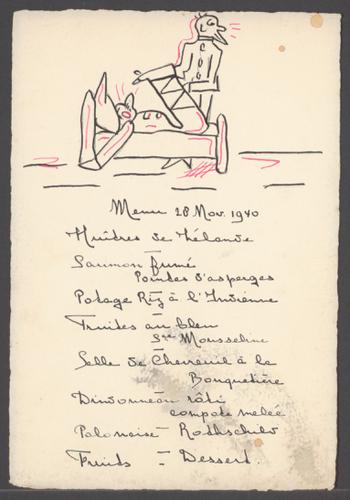 Menu 28 Nov. 1940
Huîtres de Zélande
Saumon fumé
Pointes d'asperges
Potage Riz à l'Indienne
Truites au bleu
Sce Mousseline
Selle de Chevreuil à la
Bouquetière
Dindonneau rôti
compote melée
Polonaise - Rothschild
Fruits - Dessert.